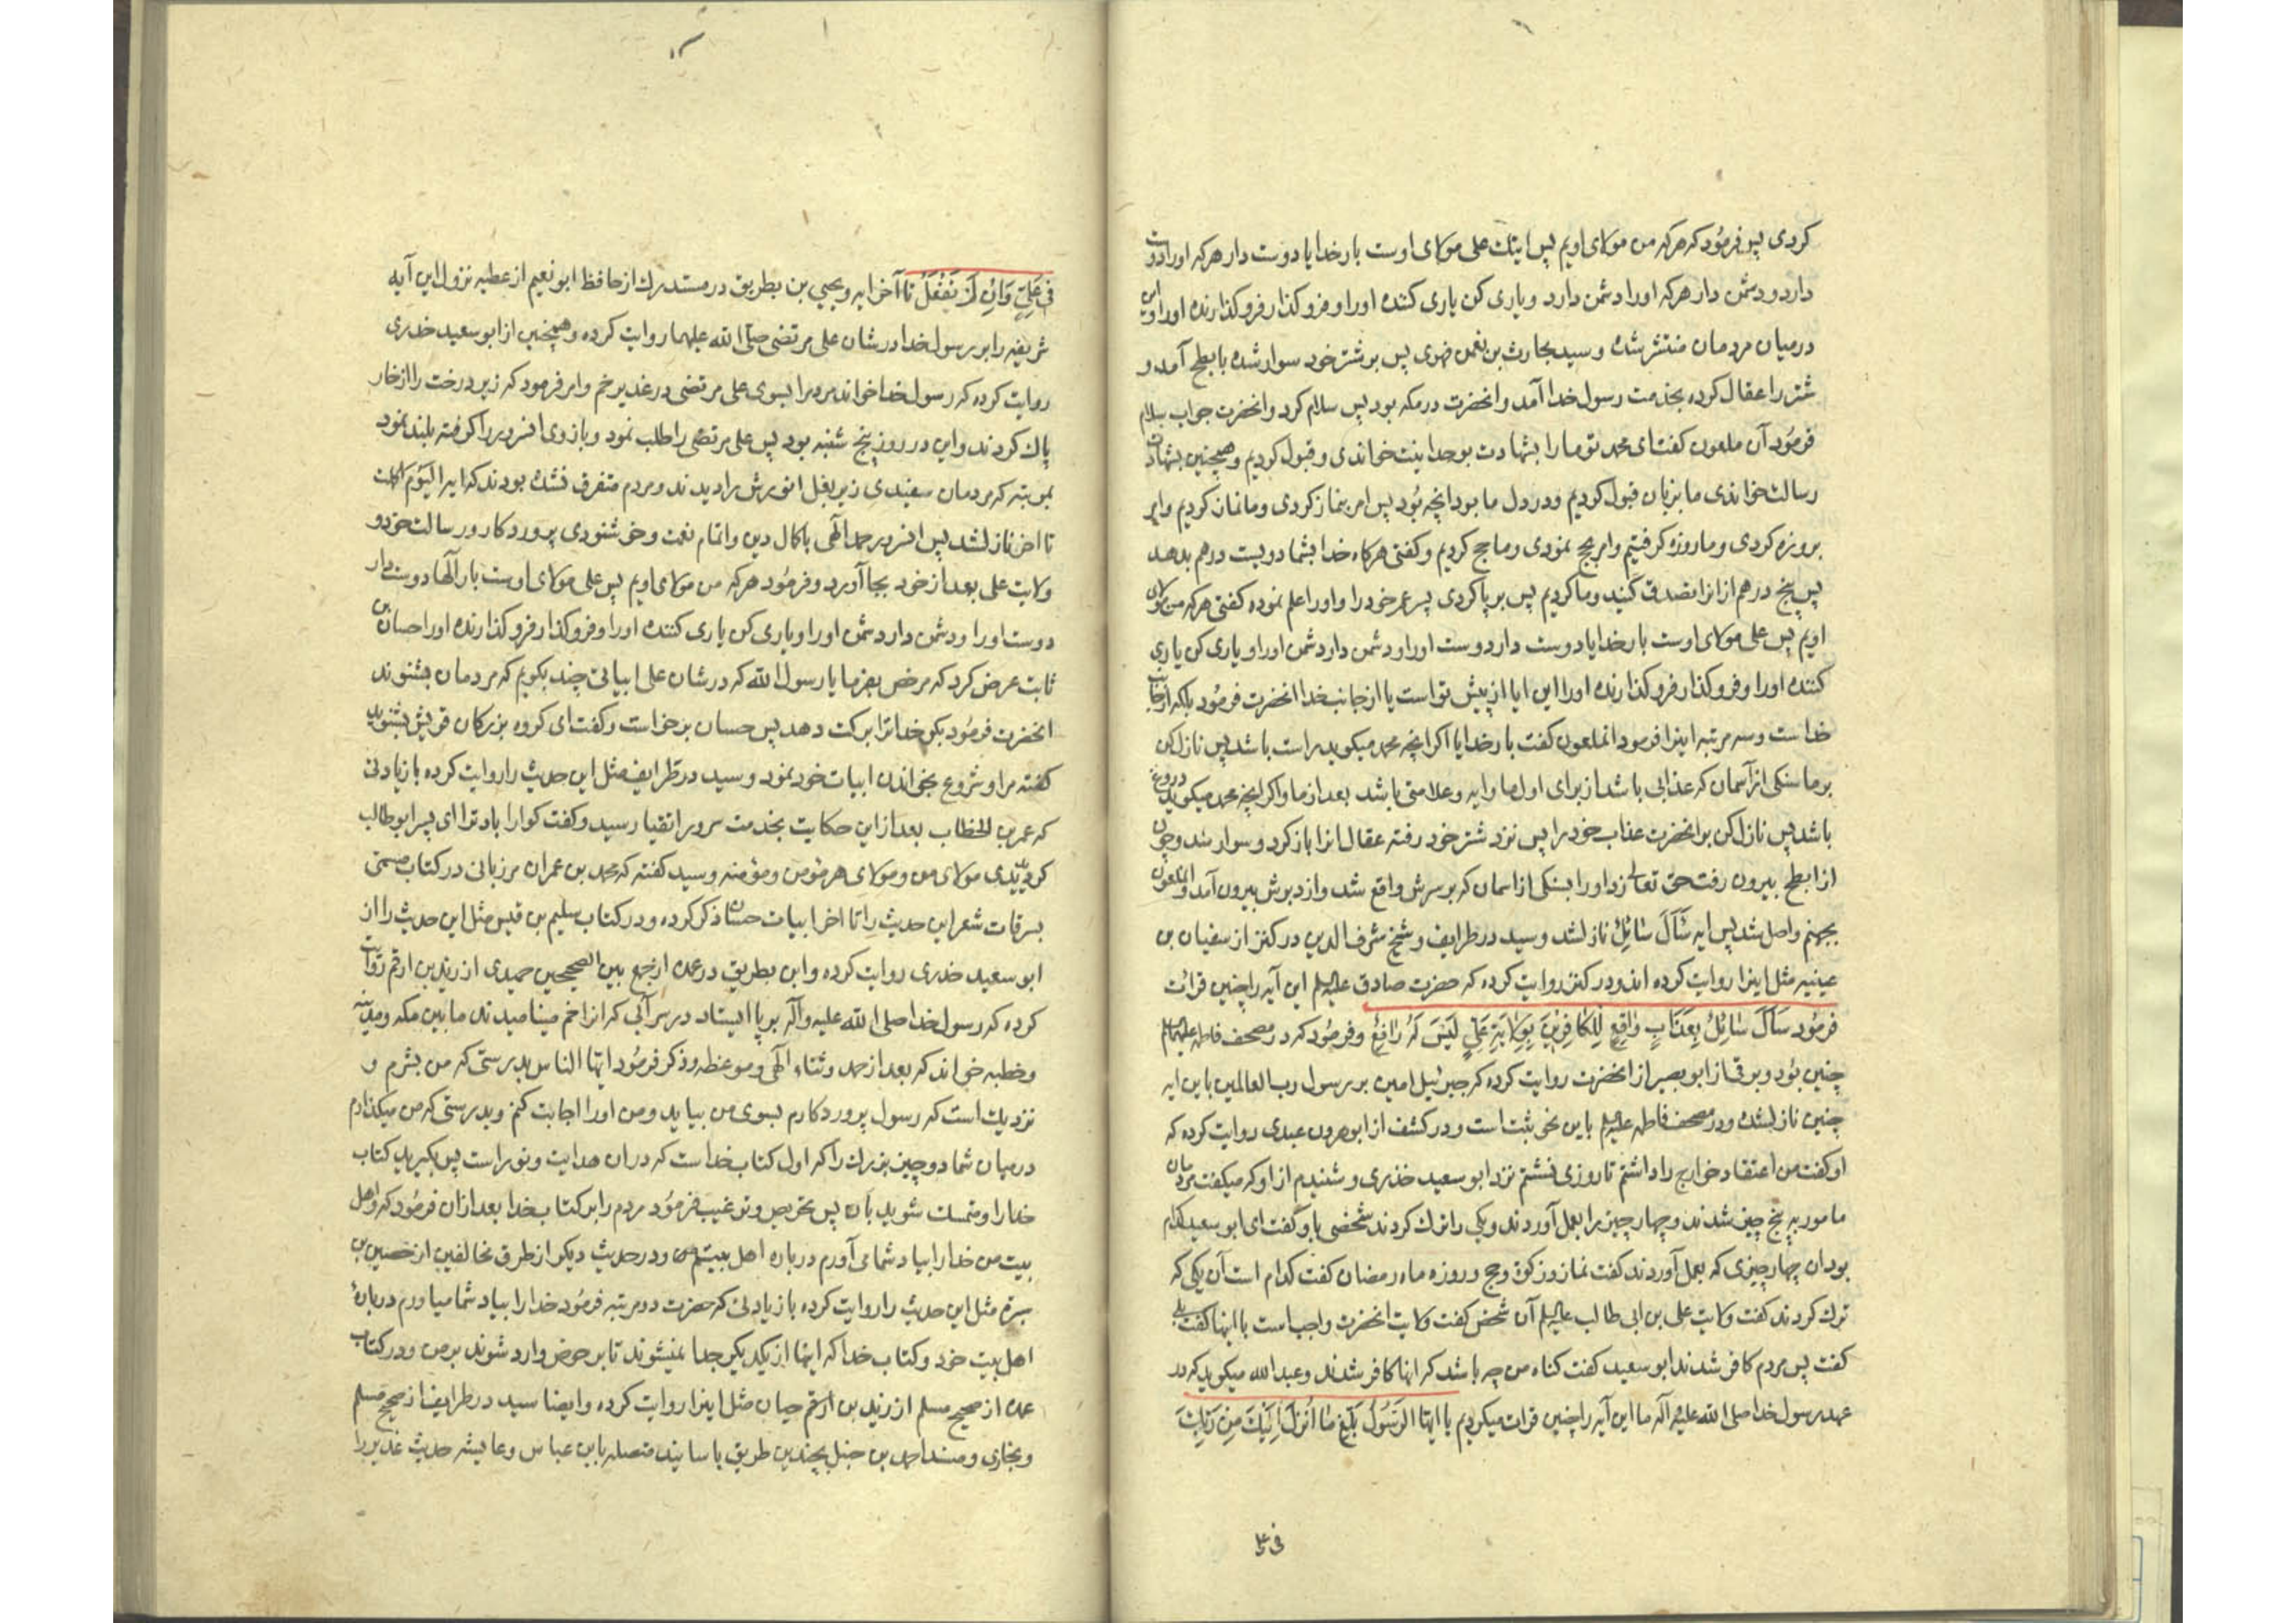 کردی پس فرمود که هرکه من مولای اویم پس اینک علی مولای اوست بار خدایا دوست دار هرکه اورا دوست
دارد ودشمن دار هرکه اورا دشمن دارد ویاری کن یاری کننده اورا وفروکذار فروکذارنده اورا واین
درمیان مردمان منتشر شده و سید بحارث بن نعمن فهری پس بر شتر خود سوار شده بابطح آمد و
شتر را عقال کرده بخدمت رسول خدا آمد وانحضرت درمکه بود پس سلام کرد وانحضرت جواب سلام
فرمود آن ملعون کفت ای محمد تو مارا بشهادت بوحدانیت خواندی وقبول کردیم وهمچنین بشهادت
رسالت خواندی ما بزبان قبول کردیم ودردل ما بود انچه بود پس امر بنماز کردی وما نماز کردیم وامر
بروزه کردی وما روزه کرفتیم وامر بحج نمودی وما حج کردیم وکفتی هرکاه خدا بشما دویست درهم بدهد
پس پنج درهم ازانرا تصدق کنید وما کردیم پس برپا کردی پسر عم خودرا واورا علم نموده کفتی هرکه من مولای
اویم پس علی مولای اوست بار خدایا دوست دار دوست اورا ودشمن دار دشمن اورا ویاری کن یاری
کننده اورا وفروکذار فروکذارنده اورا این ایا از پیش تواست یا از جانب خدا انحضرت فرمود بلکه ازجانب
خداست وسه مرتبه اینرا فرمود انملعون کفت بار خدایا اکر انچه محمد میکوید راست باشد پس نازل کن
برما سنکی از آسمان که عذابی باشد از برای اول ما وایه وعلامتی باشد بعد از ما واکر انچه محمد میکوید دروغ
باشد پس نازل کن بر انحضرت عذاب خود را پس نزد شتر خود رفته عقال انرا باز کرد وسوار شد وچون
از ابطح بیرون رفت حق تعالی زد اورا بسنکی ازاسمان که برسرش واقع شد وازدبرش بیرون آمد وانملعون
بجهنم واصل شد پس ایه سَأَلَ سائِلٌ نازل شد وسید در طرایف وشیخ شرف الدین در کنز از سفیان بن
عینیه مثل اینرا روایت کرده اند ودر کنز روایت کرده که حضرت صادق علیه السلم این آیه را چنین قرائت
فرمود سَأَلَ سائِلٌ بِعَذابٍ واقِعٍ لِلکافِرینَ بِوِلایَةِ عَلِیٍّ لَیْسَ لَهُ دافِعٌ وفرمود که در مصحف فاطمه علیها السلام
چنین بود وبرقی از ابوبصیر از انحضرت روایت کرده که جبرئیل امین بر رسول رب العالمین باین ایه
چنین نازل شده ودر مصحف فاطمه علیه السلم باین نحو ثبت است ودر کشف از ابوهرون عبدی روایت کرده که
اوکفت من اعتقاد خوارج را داشتم تا روزی نشستم نزد ابوسعید خذری وشنیدم از او که میکفت مردمان
مامور به پنج چیز شدند وچهار چیز را بعمل آوردند ویکی را ترک کردند شخصی باو کفت ای ابوسعید کدام
بود ان چهار چیزی که بعمل آوردند کفت نماز وزکوة وحج وروزه ماه رمضان کفت کدام است آن یکی که
ترک کردند کفت ولایت علی بن ابی طالب علیه السلم آن شخص کفت ولایت انحضرت واجب است با اینها کفت بلی
کفت پس مردم کافر شدند ابوسعید کفت کناه من چه باشد که انها کافر شدند وعبد الله میکوید که در
عهد رسول خدا صلی الله علیه وآله ما این آیه را چنین قرات میکردیم یا ایها الرَسُولُ بَلِّغ ما اُنْزِلَ اِلَیْکَ مِنْ رَبِّکَ
فی علی
فی عَلِیٍّ وَاِنْ لَمْ تَفْعَلْ تا آخر ایه ویحیی بن بطریق در مستدرک از حافظ ابونعیم از عطیه نزول این آیه
شریفه را بر رسول خدا درشان علی مرتضی صلی الله علیهما روایت کرده وهمچنین از ابوسعید خدری
روایت کرده که رسول خدا خواند مردم را بسوی علی مرتضی در غدیر خم وامر فرمود که زیر درخت را ازخار
پاک کردند واین در روز پنج شنبه بود پس علی مرتضی را طلب نمود وبازوی انسرور را کرفته بلند نمود
بمرتبه که مردمان سفیدی زیر بغل انورش را دیدند ومردم متفرق نشده بودند که ایه الیَوْمَ اکملت
تا اخر نازل شد پس انسرور حمد الهی باکمال دین واتمام نعمت وخوشنودی پروردکار ورسالت خود و
ولایت علی بعد از خود بجا آورد وفرمود هرکه من مولای اویم پس علی مولای اوست بار آلها دوست دار
دوست اورا ودشمن دار دشمن اورا ویاری کن یاری کننده اورا وفروکذار فروکذارنده اورا حسان بن
ثابت عرض کرد که مرخص بفرما یا رسول الله که درشان علی ابیاتی چند بکویم که مردمان بشنوند
انحضرت فرمود بکو خدا ترا برکت دهد پس حسان برخواست وکفت ای کروه بزرکان قریش بشنوید
کفته مرا وشروع بخواندن ابیات خود نمود وسید در طرایف مثل این حدیث را روایت کرده با زیادتی
که عمر بن الخطاب بعد از این حکایت بخدمت سرور اتقیا رسید وکفت کوارا باد ترا ای پسر ابوطالب
کردیدی مولای من ومولای هر مؤمن ومؤمنه وسید کفته که محمد بن عمران مرزبانی در کتاب مسمی
بسرقات شعر این حدیث را تا اخر ابیات حسان ذکر کرده ودر کتاب سلیم بن قیس مثل این حدیث را از
ابوسعید خدری روایت کرده وابن بطریق در عمده از جمع بین الصحیحین حمیدی از زید بن ارقم روایت
کرده که رسول خدا صلی الله علیه وآله برپا ایستاد در سر آبی که انرا خم مینامیدند ما بین مکه ومدینه
وخطبه خواند که بعد از حمد وثناء الهی وموعظه وذکر فرمود ایها الناس بدرستی که من بشرم و
نزدیک است که رسول پروردکارم بسوی من بیاید ومن اورا اجابت کنم وبدرستی که من میکذارم
درمیان شما دوچیز بزرک را که اول کتاب خداست که دران هدایت ونور است پس بکیرید کتاب
خدا را ومتمسک شوید بان پس تحریص وترغیب فرمود مردم را بر کتاب خدا بعد ازان فرمود که واهل
بیت من خدارا بیاد شما می آورم درباره اهل بیتم ودر حدیث دیکر از طرق مخالفین از حصین بن
سبرة مثل این حدیث را روایت کرده با زیادتی که حضرت دو مرتبه فرمود خدا را بیاد شما میاورم درباره
اهل بیت خود وکتاب خدا که اینها از یکدیکر جدا نمیشوند تا بر حوض وارد شوند بر من ودر کتاب
عمده از صحیح مسلم از زید بن ارقم حیان مثل اینرا روایت کرده وایضا سید در طرایف از صحیح مسلم
وبخاری ومسند احمد بن حنبل بچندین طریق باسانید متصله بابن عباس وعایشه حدیث غدیر را